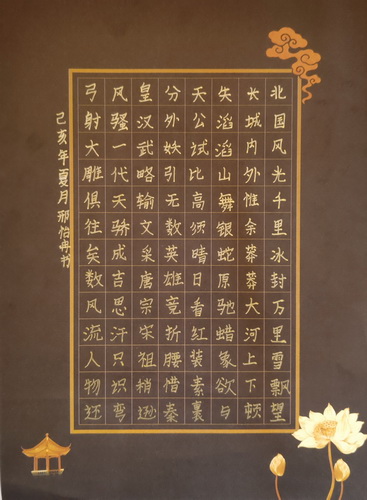 北国风光千里冰封万里雪飘望
长城内外惟余莽莽大河上下顿
失滔滔山舞银蛇原驰蜡象欲与
天公试比高须晴日看红装素裹
分外妖引无数英雄竞折腰惜秦
皇汉武略输文采唐宗宋祖稍逊
风骚一代天骄成吉思汗只识弯
弓射大雕俱往矣数风流人物还
己亥年夏月邢怡冉书